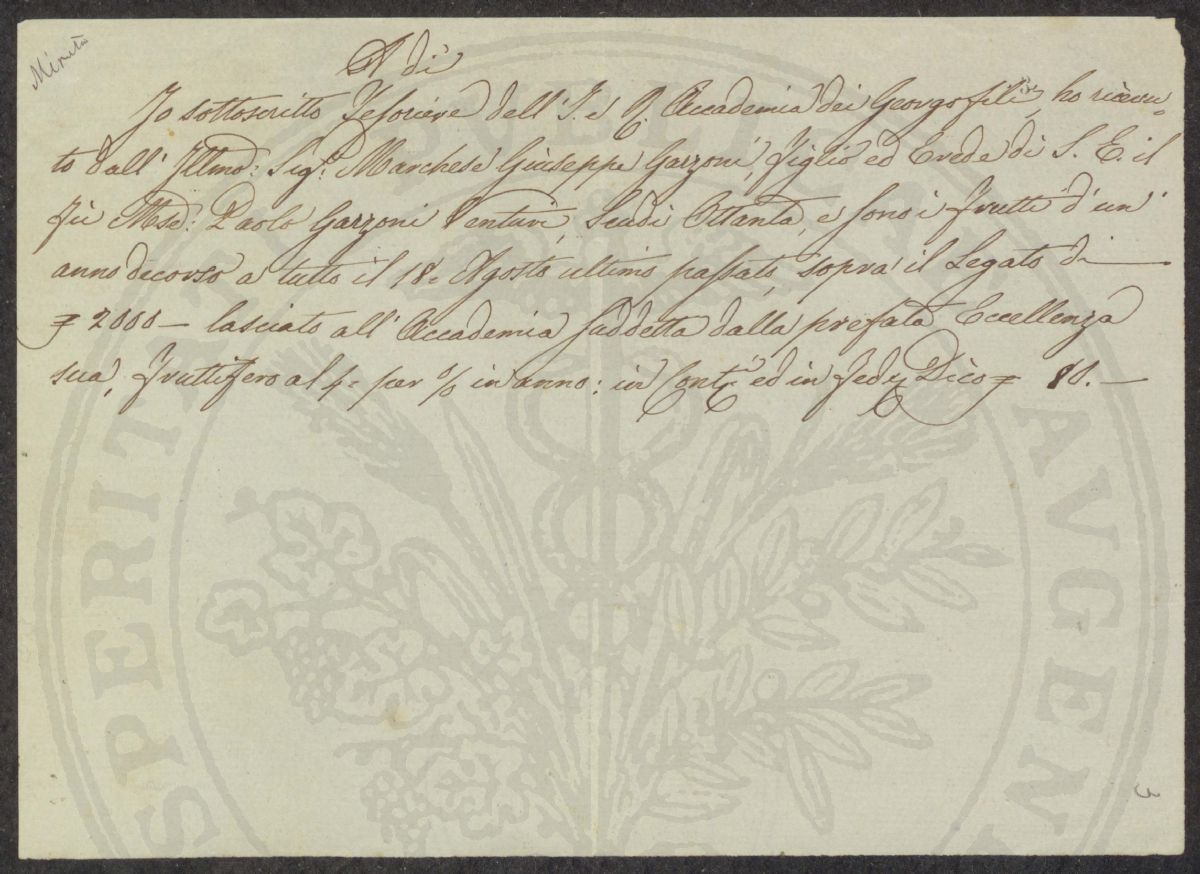 Minuta
A di
Io sottoscritto Tesoriere dell' I. e R. Accademia dei Georgofili, ho ricevu-
to dall' Illmo: Sigr. Marchese Giuseppe Garzoni, figlio ed Erede di S. E. il
fù Mse: Paolo Garzoni Venturi, Scudi Ottanta, e sono i frutti d'un'
anno decorso a tutto il 18. Agosto ultimo passato, sopra il Legato di —
2000 — lasciato all' Accademia suddetta dalla prefata Eccellenza
sua, fruttifero al 4. per % in anno: in Contti ed in fede Dico 80. —
3
PVBLICAE
SPERITATI
AVGEN